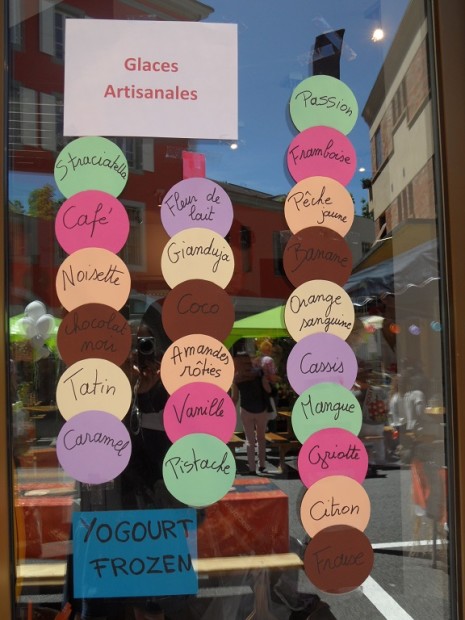 Glaces
Artisanales
Straciatella
Café
Noisette
chocolat
noir
Tatin
Caramel
YOGOURT
FROZEN
Fleur de
lait
Gianduja
Coco
Amandes
rôties
Vanille
Pistache
Passion
Framboise
Pêche
jaune
Banane
Orange
sanguine
Cassis
Mangue
Griotte
Citron
Fraise